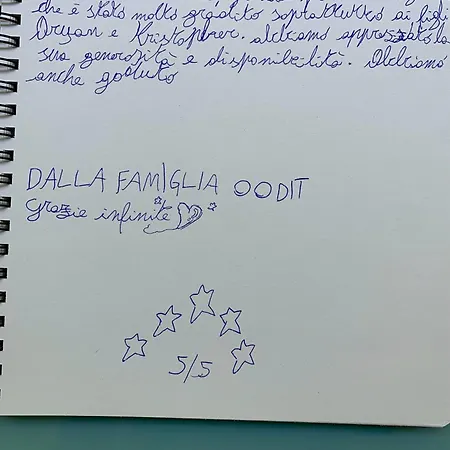 che è stato molto gradito soprattutto ai figli
Oryan e Kristopher. abbiamo apprezzato la
sua generosità e disponibilità. Abbiamo
anche goduto
DALLA FAMIGLIA OODIT
grazie infinite
5/5